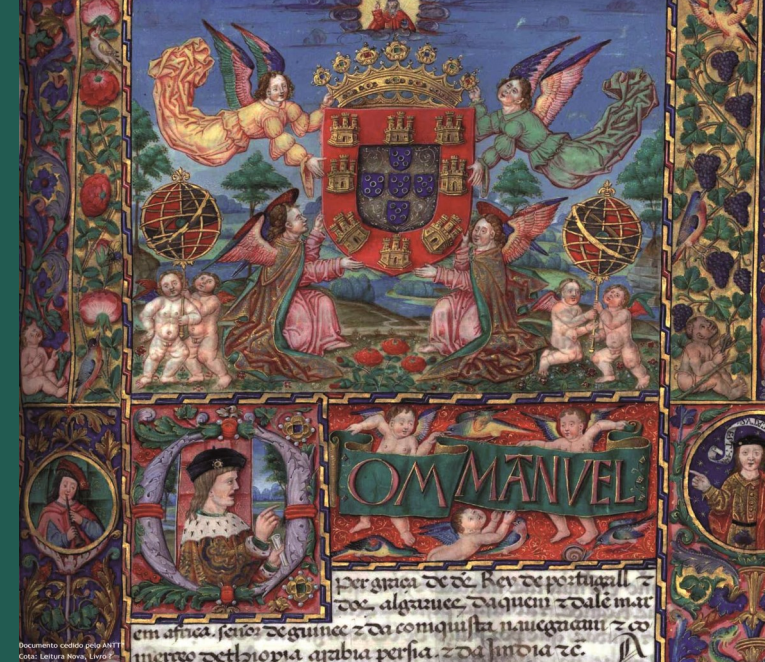 OM MANVEL
per graça de ds Rey de portugall z
dos algarues daquem z dalē mar
em africa. señor de guinee z da comquista nauegacam z co
mercio dethiopia arabia persia. z da Jndia zc. A
Documento cedido pelo ANTT
Cota: Leitura Nova, Livro 7